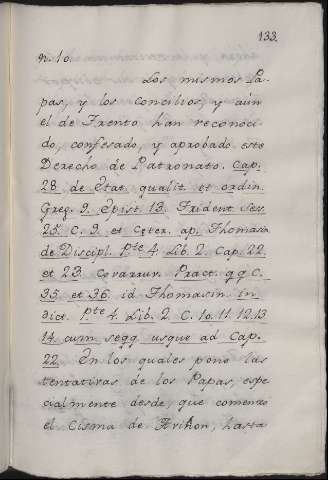 133.
n. 10.
Los mismos Pa-
pas, y los Concilios, y aún
el de Trento han reconoci-
do, confesado, y aprobado este
Derecho de Patronato. Cap.
28. de Ætat. qualit. et ordin.
Greg. 9. Epist. 13. Trident. Ses.
25. C. 9. et Ceter. ap. Thomasin
de Discipl. Pte 4. Lib. 2. Cap. 22.
et 23. Covarruv. Pract. qq C.
35. et 36. id. Thomasin. in
dict. Pte 4. Lib. 2. C. 10. 11. 12. 13
14. cum seqq. usque ad Cap.
22. En los quales pone las
tentativas de los Papas, espe-
cialmente desde, que comenzó
el Cisma de Aviñon, hasta